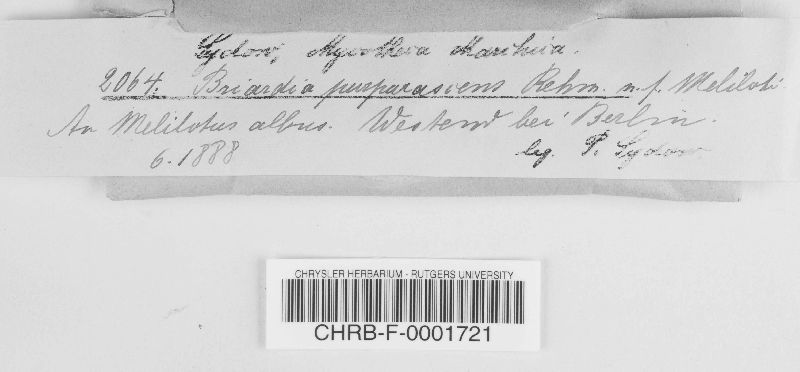 Sydow, Mycotheca Marchica.
2064. Briardia purpurascens Rehm. n. f. Meliloti
An Melilotus albus. Westend bei Berlin.
6. 1888 leg. P. Sydow
CHRYSLER HERBARIUM - RUTGERS UNIVERSITY
CHRB-F-0001721